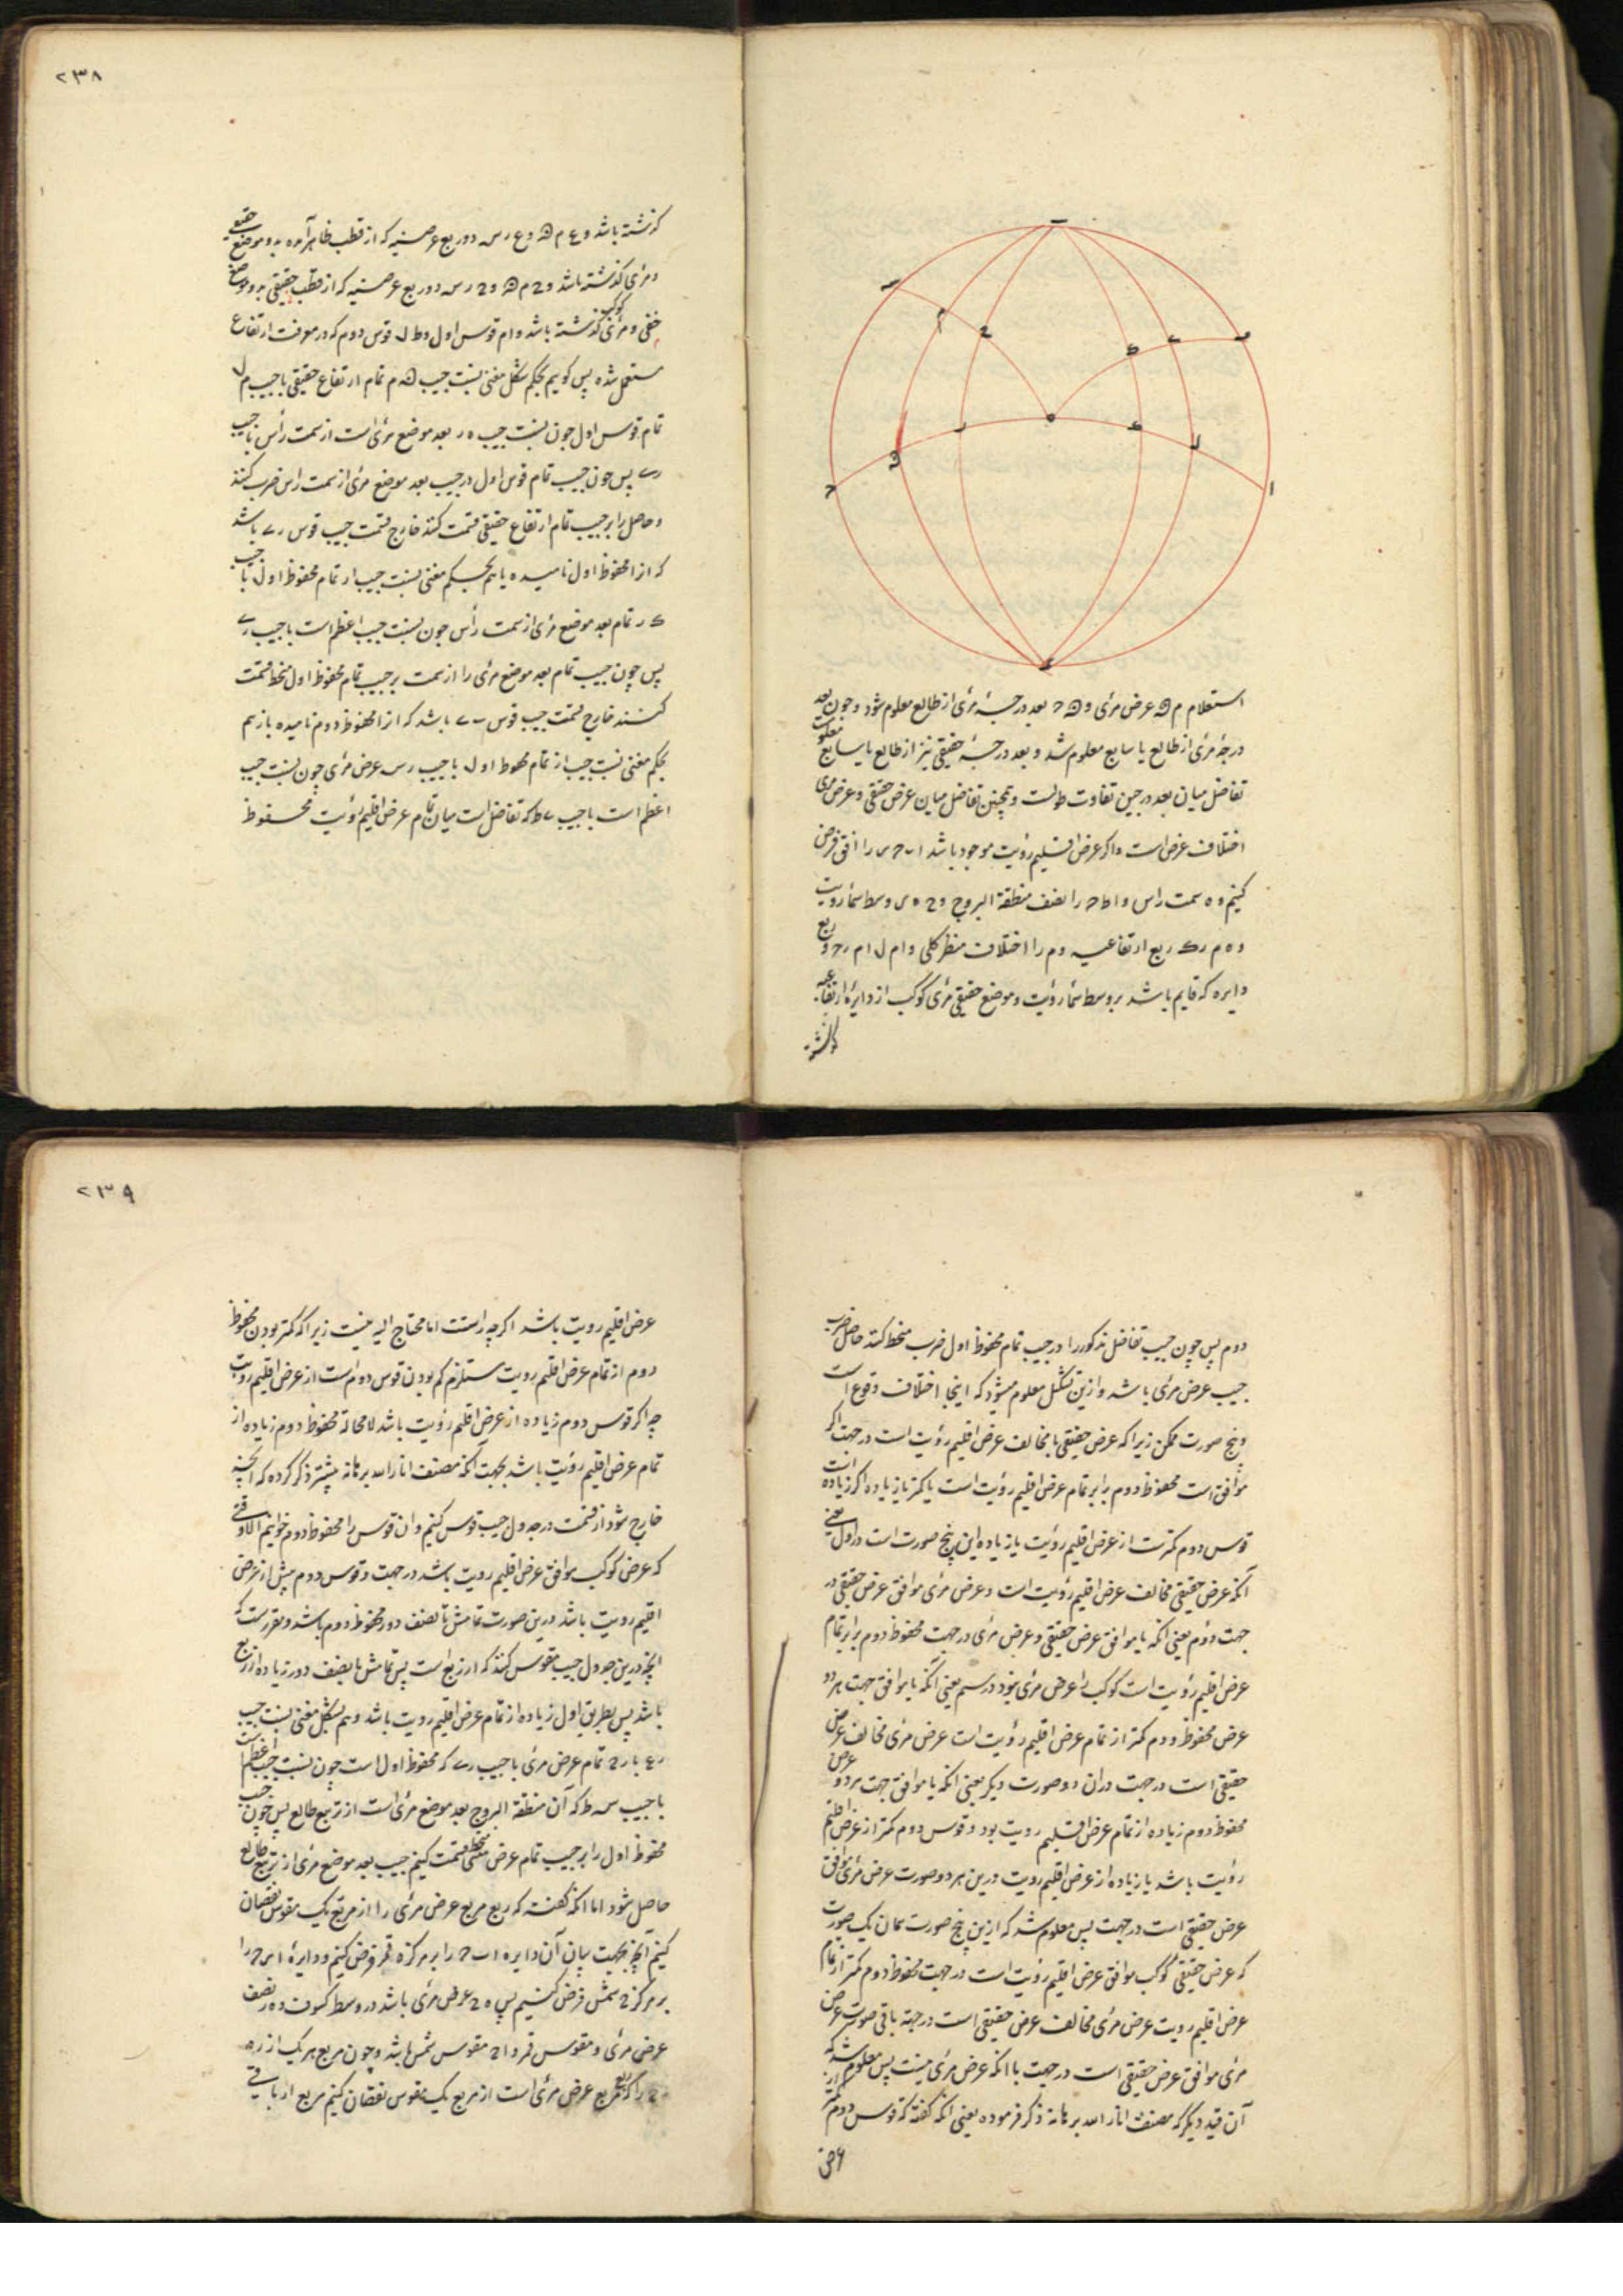 ۲۳۸
استعلام م ه عرض مرئی و ه ح بعد درجهٔ مرئی از طالع معلوم شود و چون بعد
درجهٔ مرئی از طالع یا سابع معلوم شد و بعد درجهٔ حقیقی نیز از طالع یا سابع معلوم
تفاضل میان بعد درجتین تفاوت طولست و همچنین تفاضل میان عرض حقیقی و عرض مرئی
اختلاف عرض است و اگر عرض اقلیم رؤیت موجود باشد ا ب ح را افق فرض
کنیم و ه سمت راس و ا ط ح را نصف منطقة البروج و وسط سماء رویت
ربع ارتفاعیه و م را اختلاف منظر کلی و ربع
دایره که قایم باشد بر وسط سماء رؤیت و موضع حقیقی مرئی کوکب از دایرهٔ ارتفاعیه
گذشته
گذشته باشد و دو ربع عرضیه که از قطب ظاهر آمده به دو موضع حقیقی
و مرئی گذشته باشد و دو ربع عرضیه که از قطب حقیقی به دو موضع
خفی و مرئی کوکب گذشته باشد و ام قوس اول و ط ل قوس دوم که در معرفت ارتفاع
مستعمل شده پس گوییم بحکم شکل مغنی نسبت جیب ه م تمام ارتفاع حقیقی با جیب م ل
تمام قوس اول چون نسبت جیب ه ر بعد موضع مرئی است از سمت رأس با جیب
ری پس چون جیب تمام قوس اول در جیب بعد موضع مرئی از سمت راس ضرب کنند
و حاصل را بر جیب تمام ارتفاع حقیقی قسمت کنند خارج قسمت جیب قوس ری باشد
که انرا محفوظ اول نامیده یا هم بحکم مغنی نسبت جیب ار تمام محفوظ اول با جیب
ک ر تمام بعد موضع مرئی از سمت رأس چون نسبت جیب اعظم است با جیب
پس چون جیب تمام بعد موضع مرئی را از سمت بر جیب تمام محفوظ اول منحط قسمت
کنند خارج قسمت جیب قوس باشد که انرا محفوظ دوم نامیده باز هم
بحکم مغنی نسبت جیب از تمام محفوظ اول با جیب رس عرض مرئی چون نسبت جیب
اعظم است با جیب ی ط که تفاضل است میان تمام عرض اقلیم رؤیت محفوظ
۲۳۹
دوم پس چون جیب تفاضل مذکور را در جیب تمام محفوظ اول ضرب منحط کنند حاصل ضرب
جیب عرض مرئی باشد و ازین شکل معلوم میشود که اینجا اختلاف وقوع است
و پنج صورت ممکن زیرا که عرض حقیقی با مخالف عرض اقلیم رؤیت است در جهت اگر
موافق است محفوظ دوم برابر تمام عرض اقلیم رؤیت است یا کمتر یا زیاده اگر زیاده است
قوس دوم کمتر است از عرض اقلیم رؤیت یا زیاده این پنج صورت است در اول یعنی
آنکه عرض حقیقی مخالف عرض اقلیم رؤیت است و عرض مرئی موافق عرض حقیقی در
جهت دوم یعنی انکه با موافق عرض حقیقی و عرض مرئی در جهت محفوظ دوم برابر تمام
عرض اقلیم رؤیت است کوکب را عرض مرئی نبود در سیم یعنی آنکه با موافق جهت هر دو
عرض محفوظ دوم کمتر از تمام عرض اقلیم رؤیت است عرض مرئی مخالف عرض
حقیقی است در جهت در ان دو صورت دیگر یعنی انکه با موافق جهت هر دو عرض
محفوظ دوم زیاده از تمام عرض اقلیم رویت بود و قوس دوم کمتر از عرض اقلیم
رؤیت باشد یا زیاده از عرض اقلیم رویت درین هر دو صورت عرض مرئی موافق
عرض حقیقی است در جهت پس معلوم شد که ازین پنج صورت همان یک صورت
که عرض حقیقی کوکب موافق عرض اقلیم رؤیت است در جهت محفوظ دوم کمتر از تمام
عرض اقلیم رویت عرض مرئی مخالف عرض حقیقی است در جهة باقی صورت عرض
مرئی موافق عرض حقیقی است در جهت با انکه عرض مرئی نیست پس معلوم شد که
آن قید دیگر که مصنف انار الله برهانه ذکر فرموده یعنی انکه گفته که قوس دوم کمتر از
عرض
عرض اقلیم رویت باشد اگرچه راست اما محتاج الیه نیست زیرا که کمتر بودن محفوظ
دوم از تمام عرض اقلیم رویت مستلزم کم بودن قوس دوم است از عرض اقلیم رویت
چه اگر قوس دوم زیاده از عرض اقلیم رؤیت باشد لامحالة محفوظ دوم زیاده از
تمام عرض اقلیم رؤیت باشد بجهت آنکه مصنف انار الله برهانه پیشتر ذکر کرده که انچه
خارج شود از قسمت در جدول جیب قوس کنیم و ان قوس را محفوظ دوم خوانیم الا وقتی
که عرض کوکب موافق عرض اقلیم رویت باشد در جهت و قوس دوم بیش از عرض
اقلیم رویت باشد درین صورت تمامش تا نصف دور محفوظ دوم باشد و مقررست که
انچه درین جدول جیب مقوس کنند کم از ربع است پس تمامش تا نصف دور زیاده از ربع
باشد پس بطریق اول زیاده از تمام عرض اقلیم رویت باشد و هم بشکل مغنی نسبت جیب
تمام عرض مرئی با جیب ری که محفوظ اول است چون نسبت جیب اعظم است
با جیب س ط که آن منطقة البروج بعد موضع مرئی است از تربیع طالع پس چون جیب
محفوظ اول را بر جیب تمام عرض مرئی منحط قسمت کنیم جیب بعد موضع مرئی از تربیع طالع
حاصل شود اما انکه گفته که ربع مربع عرض مرئی را از مربع یک مقوس نقصان
کنیم آنچه بجهت بیان آن دایره ا ب ح را بر مرکز ه قمر فرض کنیم و دایرهٔ را
بر مرکز ح شمس فرض کنیم پس ه ح عرض مرئی باشد در وسط کسوف و ه ر نصف
عرض مرئی و مقوس قمر و اح مقوس شمس باشد و چون مربع هر یک از ره
رح را که ربع مربع عرض مرئی است از مربع یک مقوس نقصان کنیم مربع ار باقی